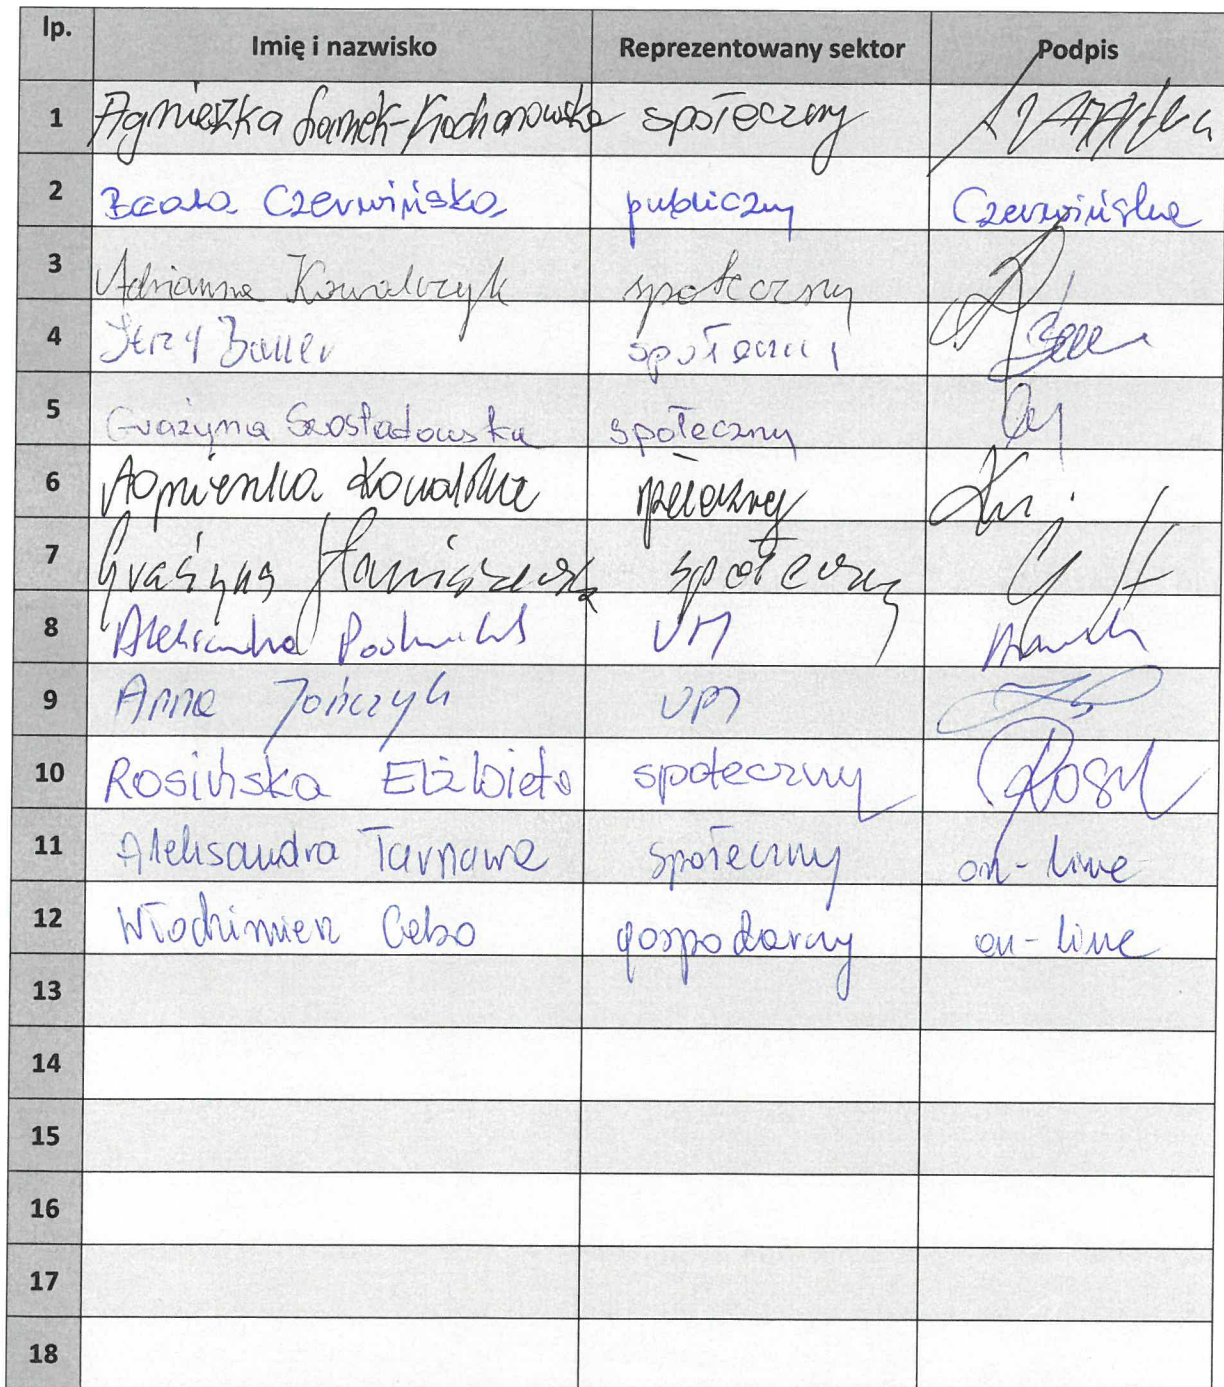 lp. Imię i nazwisko Reprezentowany sektor Podpis
1 Agnieszka Samek-Kochanowska społeczny
2 Beata Czerwińska publiczny Czerwińska
3 Adrianna Kowalczyk społeczny
4 Jerzy Bauer społeczny
5 Grażyna Szostadowska społeczny
6 Agnieszka Kowalska społeczny
7 Grażyna Staniszewska społeczny
8 Aleksandra UM
9 Anna Jończyk UM
10 Rosińska Elżbieta społeczny
11 Aleksandra Tarnawa społeczny on-line
12 Włodzimierz Cebo gospodarczy on-line
13
14
15
16
17
18